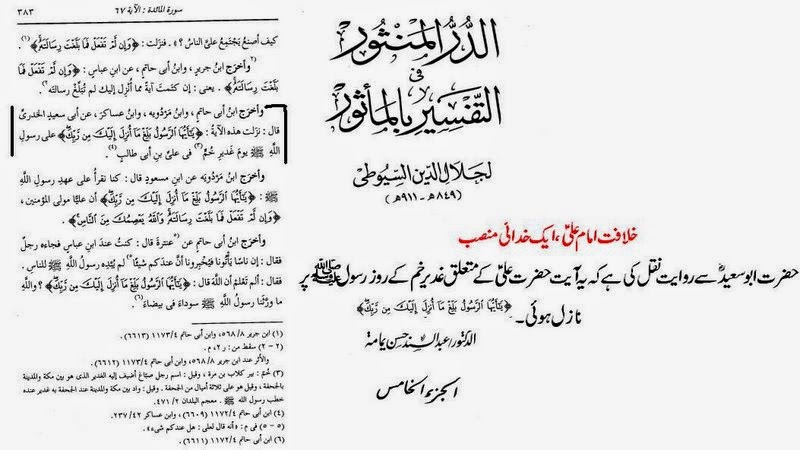 سورة المائدة : الآية ٦٧
٣٨٣
كيف أصنعُ يَجْتَمِعُ علىَّ الناسُ؟ » . فنزلت : ﴿وَإِن لَّمْ تَفْعَلْ فَمَا بَلَّغْتَ رِسَالَتَهُ﴾(١) .
(٢)وأخرَج ابنُ جريرٍ ، وابنُ أبى حاتمٍ ، عن ابنِ عباسٍ : ﴿وَإِن لَّمْ تَفْعَلْ فَمَا
بَلَّغْتَ رِسَالَتَهُ﴾ . يعنى : إن كتمتَ آيةً مما أُنزِل إليك لم تُبلِّغْ رسالتَه(٢) .
وأخرَج ابنُ أبى حاتمٍ ، وابنُ مَرْدُويَه ، وابنُ عساكرَ ، عن أبى سعيدٍ الخدرىِّ
قال : نزَلت هذه الآيةُ : ﴿يَٰٓأَيُّهَا الرَّسُولُ بَلِّغْ مَآ أُنزِلَ إِلَيْكَ مِن رَّبِّكَ﴾ على رسولِ
اللَّهِ ﷺ يومَ غَديرِ خُمٍّ(٣) ، فى علىِّ بنِ أبى طالبٍ(٤) .
وأخرَج ابنُ مَرْدُويَه عن ابنِ مسعودٍ قال : كنا نقرأُ على عهدِ رسولِ اللَّهِ
ﷺ : ﴿يَٰٓأَيُّهَا الرَّسُولُ بَلِّغْ مَآ أُنزِلَ إِلَيْكَ مِن رَّبِّكَ﴾ أن عليًّا مولى المؤمنين ،
﴿وَإِن لَّمْ تَفْعَلْ فَمَا بَلَّغْتَ رِسَالَتَهُ وَاللَّهُ يَعْصِمُكَ مِنَ النَّاسِ﴾ .
وأخرَج ابنُ أبى حاتمٍ عن (٥)عنترةَ قال : كنتُ عندَ ابنِ عباسٍ فجاءه رجلٌ
فقال : إن ناسًا يأتُونا فيُخبرونا أنَّ عندَكم شيئًا(٥) لم يُبْدِه رسولُ اللَّهِ ﷺ للناسِ .
فقال : ألم تَعْلَمْ أن اللَّهَ قال : ﴿يَٰٓأَيُّهَا الرَّسُولُ بَلِّغْ مَآ أُنزِلَ إِلَيْكَ مِن رَّبِّكَ﴾؟ واللَّهِ
ما ورَّثنا رسولُ اللَّهِ ﷺ سوداءَ فى بيضاءَ(٦) .
(١) ابن جرير ٨/ ٥٦٨، وابن أبى حاتم ٤/ ١١٧٣ (٦٦١٣) .
(٢ - ٢) سقط من : ر ٢، م .
والأثر عند ابن جرير ٨/ ٥٦٨، وابن أبى حاتم ٤/ ١١٧٣ (٦٦١٢) .
(٣) خُمّ : بير كلاب بن مرة ، وقيل : اسم رجل صبّاغ أضيف إليه الغدير الذى هو بين مكة والمدينة
بالجحفة ، وقيل هو على ثلاثة أميال من الجحفة . وقيل : واد بين مكة والمدينة عند الجحفة به غدير عنده
خطب رسول الله ﷺ . معجم البلدان ٢/ ٤٧١ .
(٤) ابن أبى حاتم ٤/ ١١٧٢ (٦٦٠٩) ، وابن عساكر ٤٢/ ٢٣٧ .
(٥ - ٥) فى م : « أنه قال لعلى : هل عندكم شىء » .
(٦) ابن أبى حاتم ٤/ ١١٧٢ (٦٦١١) .
الدُّرُّ المَنثُور
فى
التَّفسِير بالمأثُور
لجلال الدّين السّيوطىّ
(٨٤٩هـ - ٩١١هـ)
خلافت امام علیؑ، ایک خدائی منصب
حضرت ابو سعیدؓ سے روایت نقل کی ہے کہ یہ آیت حضرت علیؑ کے متعلق غدیر خم کے روز رسول ﷺ پر
﴿يَٰٓأَيُّهَا الرَّسُولُ بَلِّغْ مَآ أُنزِلَ إِلَيْكَ مِن رَّبِّكَ﴾ نازل ہوئی۔
الدكتور/ عبد السند حسن يمامة
الجزء الخامس